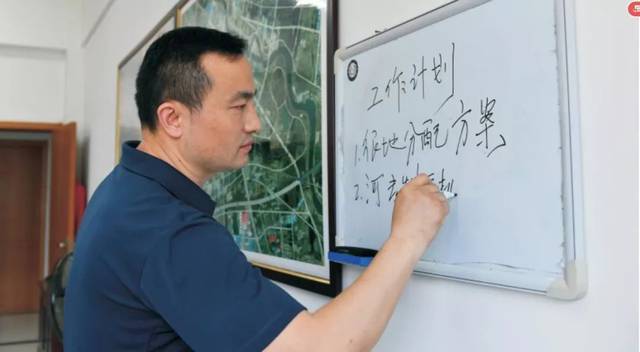 工作计划
1.征地分配方案
2.河